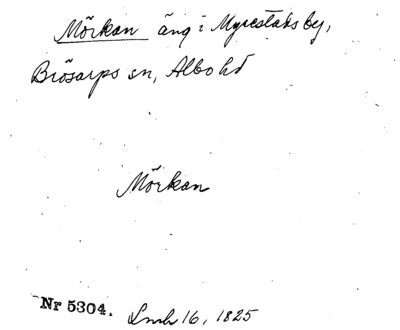 Mörkan äng i Myrestads by,
Brösarps sn, Albo hd
Mörkan
Nr 5304. Lmb 16, 1825